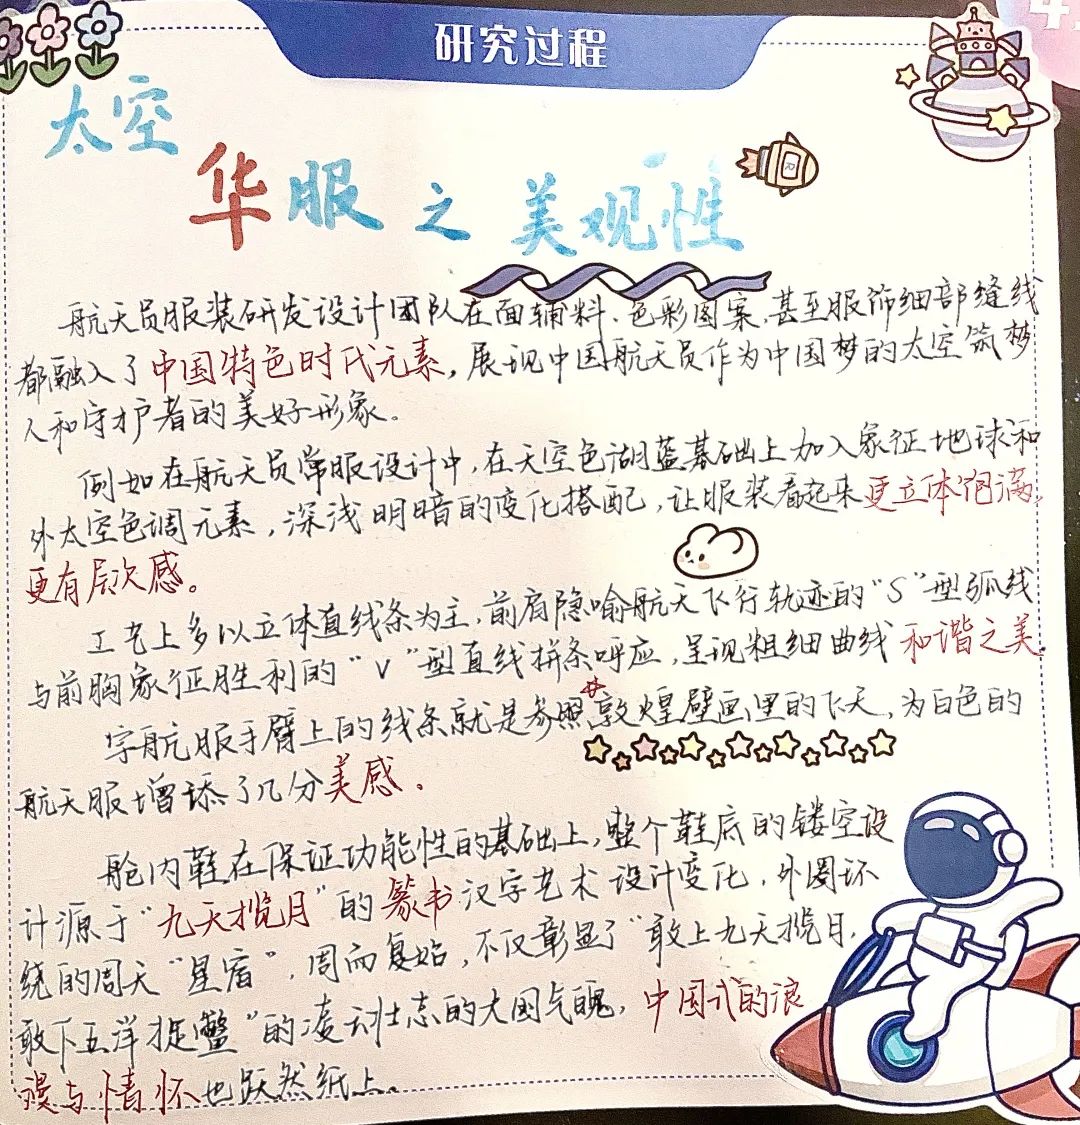 研究过程
太空
华服之美观性
航天员服装研发设计团队在面辅料、色彩图案,甚至服饰细部缝线
都融入了中国特色时代元素,展现中国航天员作为中国梦的太空筑梦
人和守护者的美好形象。
例如在航天员常服设计中,在天空色湖蓝基础上加入象征地球和
外太空色调元素,深浅明暗的变化搭配,让服装看起来更立体饱满,
更有层次感。
工艺上多以立体直线条为主,前肩隐喻航天飞行轨迹的“S”型弧线
与前胸象征胜利的“V”型直线拼条呼应,呈现粗细曲线和谐之美.
字航服手臂上的线条就是参照敦煌壁画里的飞天,为白色的
航天服增添了几分美感。
舱内鞋在保证功能性的基础上,整个鞋底的镂空设
计源于“九天揽月”的篆书汉字艺术设计变化,外圈环
绕的周天“星宿”,周而复始,不仅彰显了“敢上九天揽月,
敢下五洋捉鳖”的凌云壮志的大国气魄,中国式的浪
漫与情怀也跃然纸上。